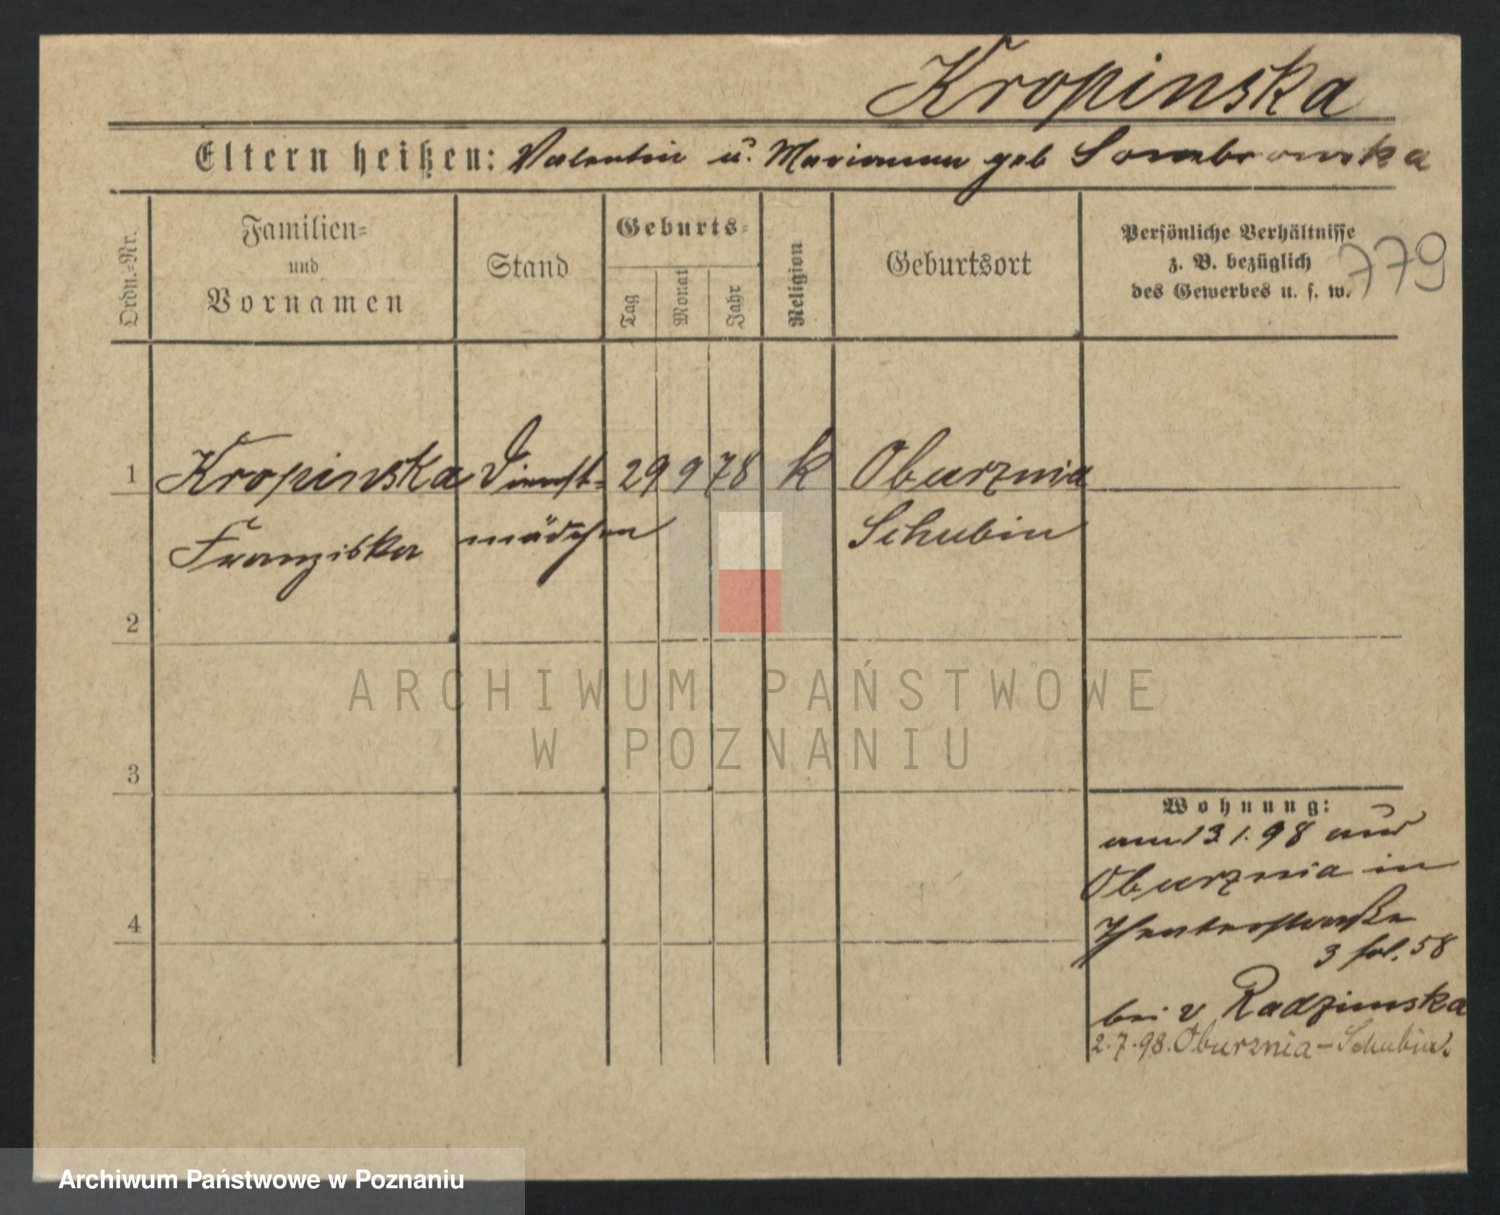 Kropinska
Eltern heißen: Valentin u. Marianna geb Dombrowska
Ordn.-Nr.
Familien- und Vornamen
Stand
Geburts-
Tag
Monat
Jahr
Religion
Geburtsort
Persönliche Verhältnisse
z. B. bezüglich
des Gewerbes u. s. w.
779
1 Kropinska Dienst- 29 9 78 k Oburznia
Franziska mädchen Schubin
2
3
4
Wohnung:
am 13.1.98 aus
Oburznia in
Theaterstraße
3 fol. 58
bei v Radzimska
2.7.98. Oburznia-Schubin.
ARCHIWUM PAŃSTWOWE
W POZNANIU
Archiwum Państwowe w Poznaniu